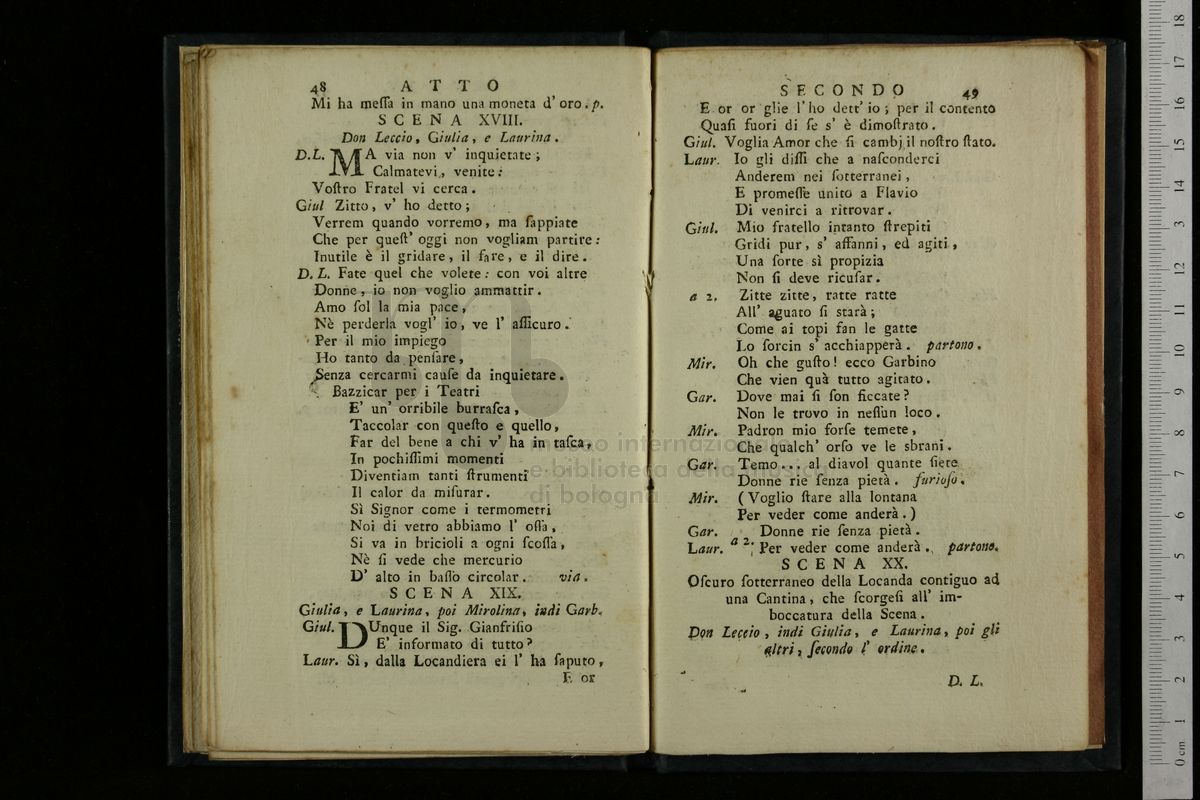 48 A T T O
Mi ha meſſa in mano una moneta d' oro. p.
S C E N A XVIII.
Don Leccio, Giulia, e Laurina.
D.L. MA via non v' inquietate;
Calmatevi, venite:
Voſtro Fratel vi cerca.
Giul Zitto, v' ho detto;
Verrem quando vorremo, ma ſappiate
Che per queſt' oggi non vogliam partire:
Inutile è il gridare, il fare, e il dire.
D. L. Fate quel che volete: con voi altre
Donne, io non voglio ammattir.
Amo ſol la mia pace,
Nè perderla vogl' io, ve l' aſſicuro.
Per il mio impiego
Ho tanto da penſare,
Senza cercarmi cauſe da inquietare.
Bazzicar per i Teatri
E' un' orribile burraſca,
Taccolar con queſto e quello,
Far del bene a chi v' ha in taſca,
In pochiſſimi momenti
Diventiam tanti ſtrumenti
Il calor da miſurar.
Sì Signor come i termometri
Noi di vetro abbiamo l' oſſa,
Si va in bricioli a ogni ſcoſſa,
Nè ſi vede che mercurio
D' alto in baſſo circolar. via.
S C E N A XIX.
Giulia, e Laurina, poi Mirolina, indi Garb.
Giul. DUnque il Sig. Gianfriſio
E' informato di tutto?
Laur. Sì, dalla Locandiera ei l' ha ſaputo,
E or
S E C O N D O 49
E or or glie l' ho dett' io; per il contento
Quaſi fuori di ſe s' è dimoſtrato.
Giul. Voglia Amor che ſi cambj il noſtro ſtato.
Laur. Io gli diſſi che a naſconderci
Anderem nei ſotterranei,
E promeſſe unito a Flavio
Di venirci a ritrovar.
Giul. Mio fratello intanto ſtrepiti
Gridi pur, s' affanni, ed agiti,
Una ſorte sì propizia
Non ſi deve ricuſar.
a 2. Zitte zitte, ratte ratte
All' aguato ſi starà;
Come ai topi fan le gatte
Lo ſorcin s' acchiapperà. partono.
Mir. Oh che guſto! ecco Garbino
Che vien quà tutto agitato.
Gar. Dove mai ſi ſon ficcate?
Non le trovo in neſſun loco.
Mir. Padron mio forſe temete,
Che qualch' orſo ve le sbrani.
Gar. Temo... al diavol quante ſiete
Donne rie ſenza pietà. furioſo.
Mir. (Voglio ſtare alla lontana
Per veder come anderà.)
Gar. Donne rie ſenza pietà.
Laur. a 2. Per veder come anderà. partono.
S C E N A XX.
Oſcuro ſotterraneo della Locanda contiguo ad
una Cantina, che ſcorgeſi all' im-
boccatura della Scena.
Don Leccio, indi Giulia, e Laurina, poi gli
altri, ſecondo l' ordine.
D. L.
museo internazionale
e biblioteca della musica
di bologna
0 cm 1 2 3 4 5 6 7 8 9 10 11 12 13 14 15 16 17 18